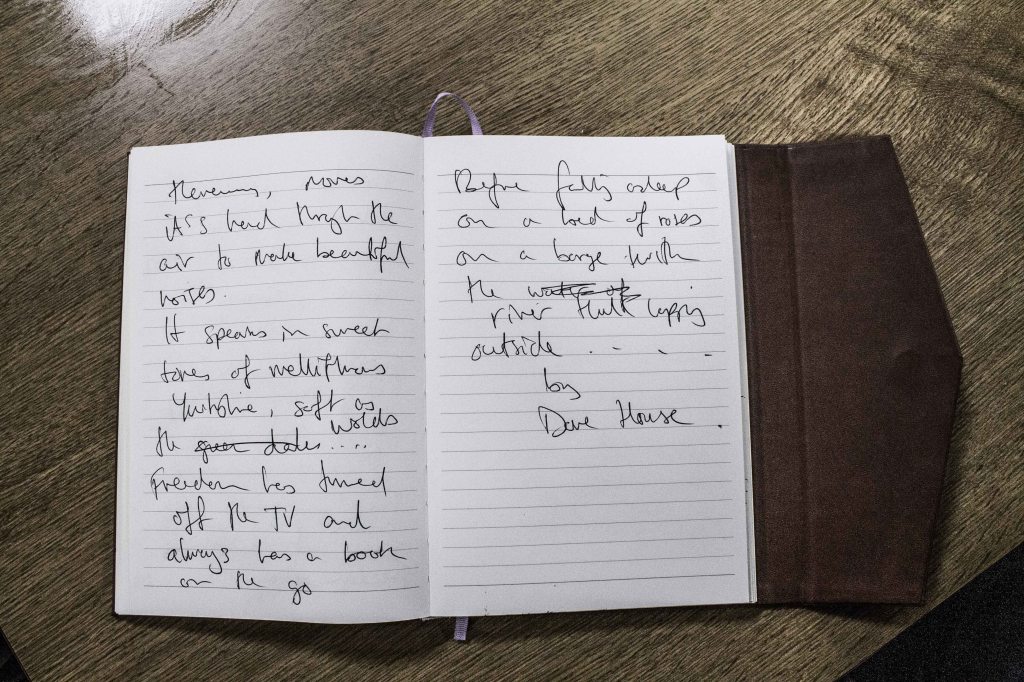 moves
it's hand through the
air to make beautiful
noises.
It speaks in sweet
tones of mellifluous
Yorkshire, soft as
wolds
the green dales ....
Freedom has turned
off the TV and
always has a book
on the go
Before falling asleep
on a bed of roses
on a barge with
the water of
river Hull lapping
outside . . . .
by
Dave House .